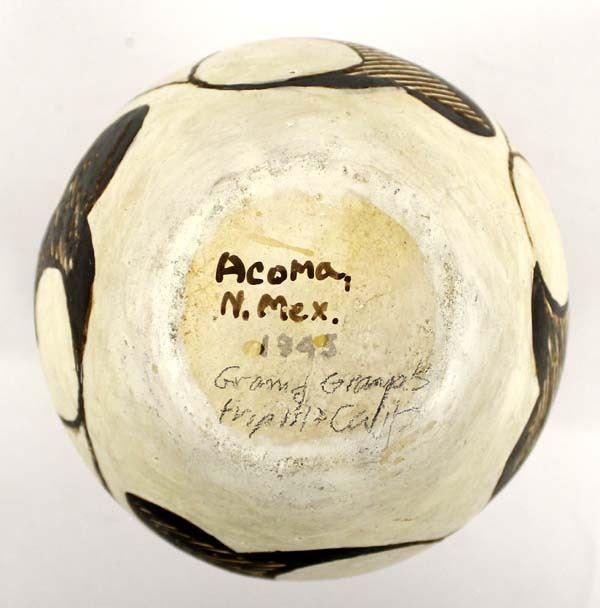 Acoma,
N. Mex.
1943
Gram & Gramp's
trip to Calif